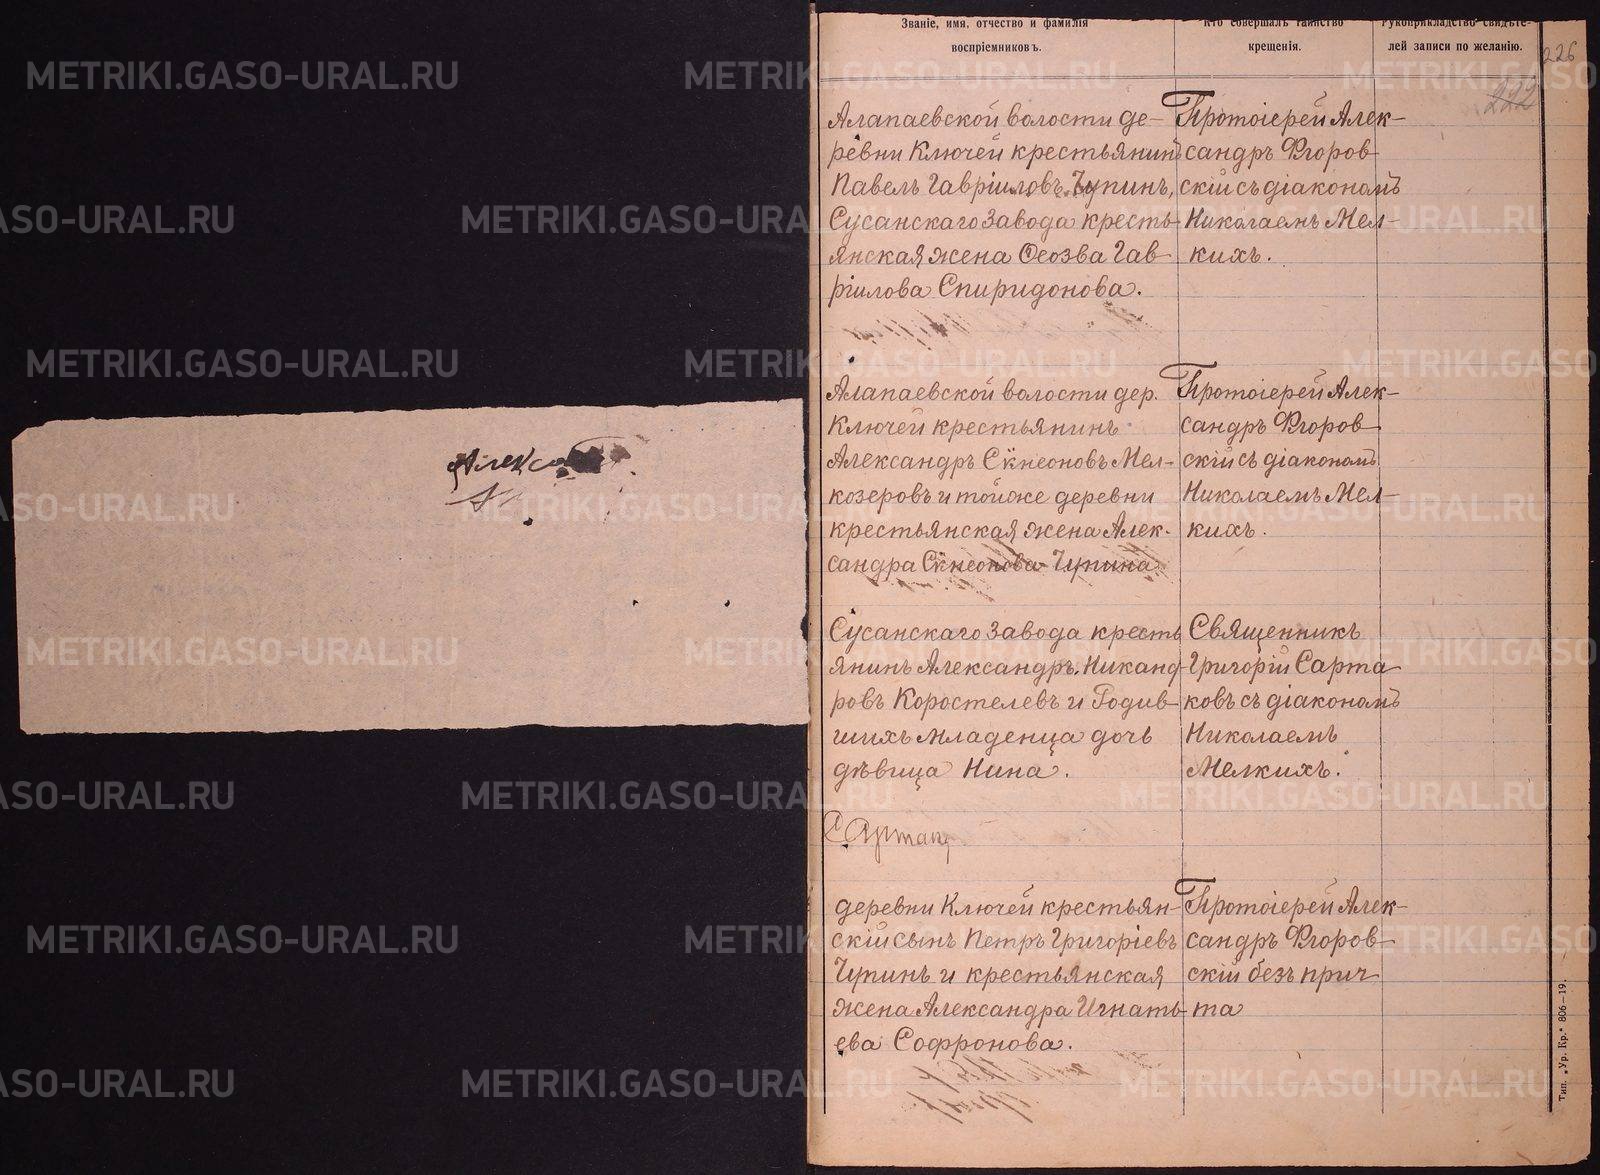 Алекса
Званіе, имя, отчество и фамилія
воспріемниковъ.
Кто совершалъ таинство
крещенія.
Рукоприкладство свидѣте-
лей записи по желанію.
226
222
Алапаевской волости де-
ревни Ключей крестьянинъ
Павелъ Гавріиловъ Чупинъ,
Сусанскаго завода кресть-
янская жена Феозва Гав-
ріилова Спиридонова.
Протоіерей Алек-
сандръ Флоров-
скій съ діакономъ
Николаемъ Мел-
кихъ.
Алапаевской волости дер.
Ключей крестьянинъ
Александръ Сѷмеоновъ Мел-
козеровъ и тойже деревни
крестьянская жена Алек-
сандра Сѷмеонова Чупина
Протоіерей Алек-
сандръ Флоров-
скій съ діакономъ
Николаемъ Мел-
кихъ.
Сусанскаго завода кресть
янинъ Александръ Никанд-
ровъ Коростелевъ и Родив-
шихъ младенца дочь
дѣвица Нина.
Священникъ
Григорій Сарта
ковъ съ діакономъ
Николаемъ
Мелкихъ.
деревни Ключей крестьян-
скій сынъ Петръ Григоріевъ
Чупинъ и крестьянская
жена Александра Игнать-
ева Софронова.
Протоіерей Алек-
сандръ Флоров-
скій безъ прич-
та
Тип. „Ур. Кр.“ 806—19.
METRIKI.GASO-URAL.RU